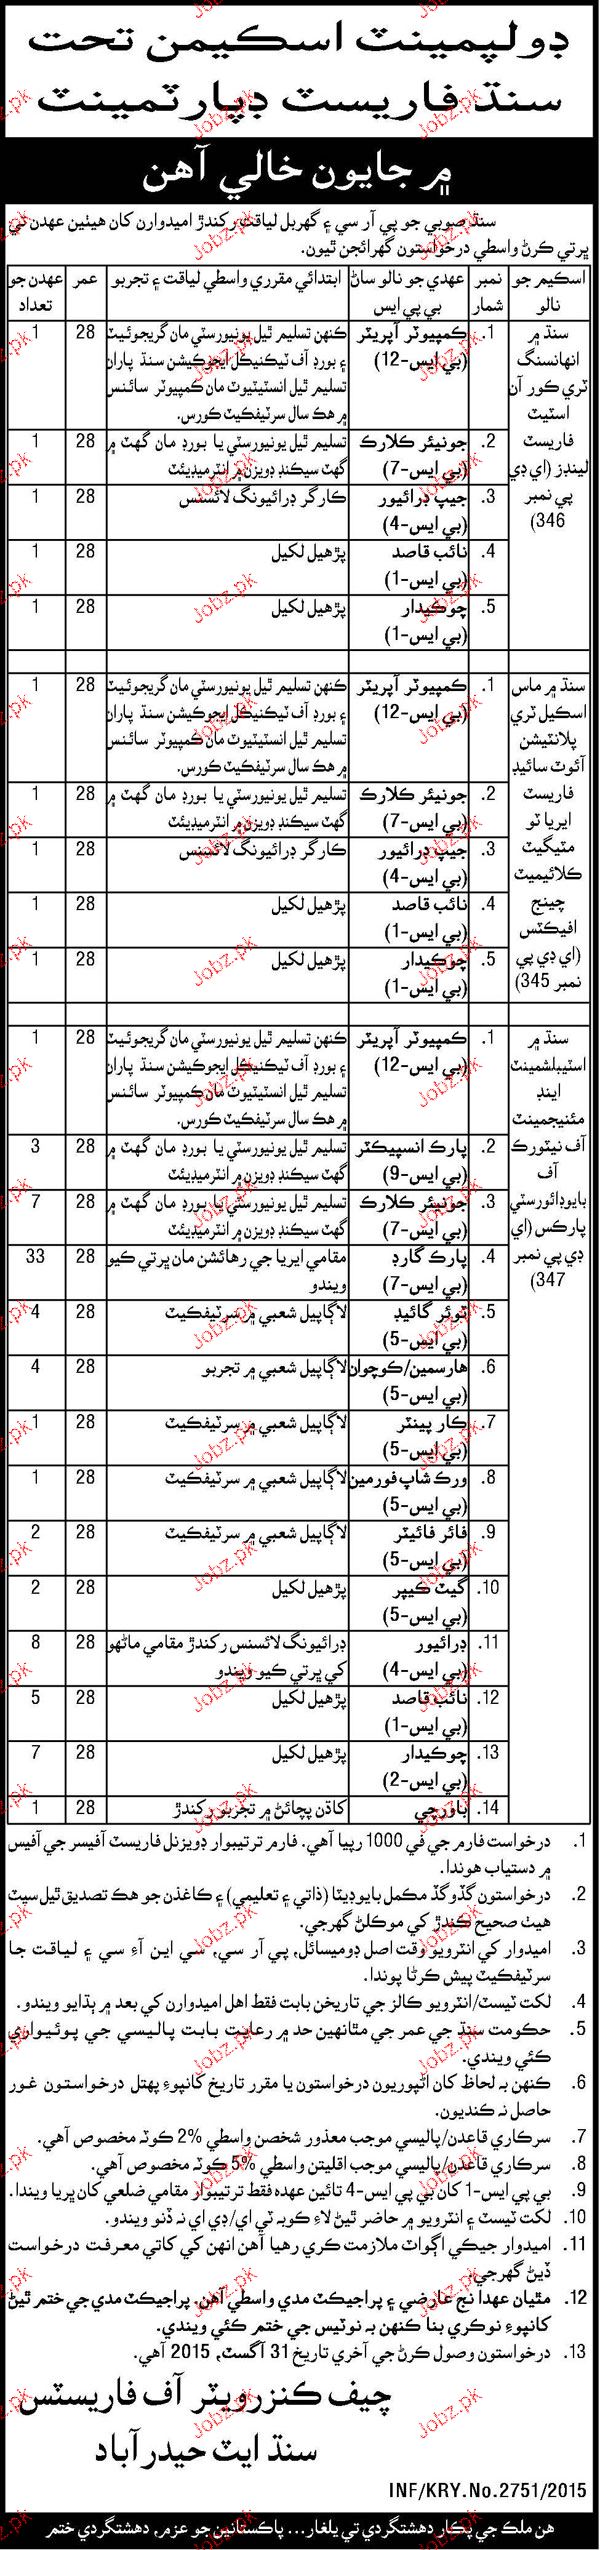 ڊولپمينٽ اسڪيمن تحت
سنڌ فاريسٽ ڊپارٽمينٽ
۾ جايون خالي آهن
سنڌ صوبي جو پي آر سي ۽ گهربل لياقت رکندڙ اميدوارن کان هيٺين عهدن تي
ڀرتي ڪرڻ واسطي درخواستون گهرائجن ٿيون.
اسڪيم جو نالو | نمبر شمار | عهدي جو نالو ساڻ بي پي ايس | ابتدائي مقرري واسطي لياقت ۽ تجربو | عمر | عهدن جو تعداد
سنڌ ۾ انهانسنگ ٽري ڪور آن اسٽيٽ فاريسٽ لينڊز (اي ڊي پي نمبر 346)
1. | ڪمپيوٽر آپريٽر (بي ايس-12) | ڪنهن تسليم ٿيل يونيورسٽي مان گريجوئيٽ ۽ بورڊ آف ٽيڪنيڪل ايجوڪيشن سنڌ پاران تسليم ٿيل انسٽيٽيوٽ مان ڪمپيوٽر سائنس ۾ هڪ سال سرٽيفڪيٽ ڪورس. | 28 | 1
2. | جونيئر ڪلارڪ (بي ايس-7) | تسليم ٿيل يونيورسٽي يا بورڊ مان گهٽ ۾ گهٽ سيڪنڊ ڊويزن ۾ انٽرميڊيئٽ | 28 | 1
3. | جيپ ڊرائيور (بي ايس-4) | ڪارگر ڊرائيونگ لائسنس | 28 | 1
4. | نائب قاصد (بي ايس-1) | پڙهيل لکيل | 28 | 1
5. | چوڪيدار (بي ايس-1) | پڙهيل لکيل | 28 | 1
سنڌ ۾ ماس اسڪيل ٽري پلانٽيشن آئوٽ سائيڊ فاريسٽ ايريا ٽو مٽيگيٽ ڪلائيميٽ چينج افيڪٽس (اي ڊي پي نمبر 345)
1. | ڪمپيوٽر آپريٽر (بي ايس-12) | ڪنهن تسليم ٿيل يونيورسٽي مان گريجوئيٽ ۽ بورڊ آف ٽيڪنيڪل ايجوڪيشن سنڌ پاران تسليم ٿيل انسٽيٽيوٽ مان ڪمپيوٽر سائنس ۾ هڪ سال سرٽيفڪيٽ ڪورس. | 28 | 1
2. | جونيئر ڪلارڪ (بي ايس-7) | تسليم ٿيل يونيورسٽي يا بورڊ مان گهٽ ۾ گهٽ سيڪنڊ ڊويزن ۾ انٽرميڊيئٽ | 28 | 1
3. | جيپ ڊرائيور (بي ايس-4) | ڪارگر ڊرائيونگ لائسنس | 28 | 1
4. | نائب قاصد (بي ايس-1) | پڙهيل لکيل | 28 | 1
5. | چوڪيدار (بي ايس-1) | پڙهيل لکيل | 28 | 1
سنڌ ۾ اسٽيبلشمينٽ اينڊ مئنيجمينٽ آف نيٽورڪ آف بايوڊائورسٽي پارڪس (اي ڊي پي نمبر 347)
1. | ڪمپيوٽر آپريٽر (بي ايس-12) | ڪنهن تسليم ٿيل يونيورسٽي مان گريجوئيٽ ۽ بورڊ آف ٽيڪنيڪل ايجوڪيشن سنڌ پاران تسليم ٿيل انسٽيٽيوٽ مان ڪمپيوٽر سائنس ۾ هڪ سال سرٽيفڪيٽ ڪورس. | 28 | 1
2. | پارڪ انسپيڪٽر (بي ايس-9) | تسليم ٿيل يونيورسٽي يا بورڊ مان گهٽ ۾ گهٽ سيڪنڊ ڊويزن ۾ انٽرميڊيئٽ | 28 | 3
3. | جونيئر ڪلارڪ (بي ايس-7) | تسليم ٿيل يونيورسٽي يا بورڊ مان گهٽ ۾ گهٽ سيڪنڊ ڊويزن ۾ انٽرميڊيئٽ | 28 | 7
4. | پارڪ گارڊ (بي ايس-7) | مقامي ايريا جي رهائشن مان ڀرتي ڪيو ويندو | 28 | 33
5. | ٽوئر گائيڊ (بي ايس-5) | لاڳاپيل شعبي ۾ سرٽيفڪيٽ | 28 | 4
6. | هارسمين/ڪوچوان (بي ايس-5) | لاڳاپيل شعبي ۾ تجربو | 28 | 4
7. | ڪارپينٽر (بي ايس-5) | لاڳاپيل شعبي ۾ سرٽيفڪيٽ | 28 | 1
8. | ورڪ شاپ فورمين (بي ايس-5) | لاڳاپيل شعبي ۾ سرٽيفڪيٽ | 28 | 1
9. | فائر فائيٽر (بي ايس-5) | لاڳاپيل شعبي ۾ سرٽيفڪيٽ | 28 | 2
10. | گيٽ ڪيپر (بي ايس-5) | پڙهيل لکيل | 28 | 2
11. | ڊرائيور (بي ايس-4) | ڊرائيونگ لائسنس رکندڙ مقامي ماڻهو کي ڀرتي ڪيو ويندو | 28 | 8
12. | نائب قاصد (بي ايس-1) | پڙهيل لکيل | 28 | 5
13. | چوڪيدار (بي ايس-2) | پڙهيل لکيل | 28 | 7
14. | باورچي | کاڌن پچائڻ ۾ تجربو رکندڙ | 28 | 1
1. درخواست فارم جي في 1000 رپيا آهي. فارم ترتيبوار ڊويزنل فاريسٽ آفيسر جي آفيس
۾ دستياب هوندا.
2. درخواستون گڏوگڏ مڪمل بايوڊيٽا (ذاتي ۽ تعليمي) ۽ ڪاغذن جو هڪ تصديق ٿيل سيٽ
هيٺ صحيح ڪندڙ کي موڪلڻ گهرجي.
3. اميدوار کي انٽرويو وقت اصل ڊوميسائل، پي آر سي، سي اين آءِ سي ۽ لياقت جا
سرٽيفڪيٽ پيش ڪرڻا پوندا.
4. لکت ٽيسٽ/انٽرويو ڪالز جي تاريخن بابت فقط اهل اميدوارن کي بعد ۾ ٻڌايو ويندو.
5. حڪومت سنڌ جي عمر جي مٿانهين حد ۾ رعايت بابت پاليسي جي پوئيواري
ڪئي ويندي.
6. ڪنهن به لحاظ کان اڻپوريون درخواستون يا مقرر تاريخ کانپوءِ پهتل درخواستون غور
حاصل نه ڪنديون.
7. سرڪاري قاعدن/پاليسي موجب معذور شخصن واسطي 2% ڪوٽه مخصوص آهي.
8. سرڪاري قاعدن/پاليسي موجب اقليتن واسطي 5% ڪوٽه مخصوص آهي.
9. بي پي ايس-1 کان بي پي ايس-4 تائين عهده فقط ترتيبوار مقامي ضلعي کان ڀريا ويندا.
10. لکت ٽيسٽ ۽ انٽرويو ۾ حاضر ٿيڻ لاءِ ڪو به ٽي اي/ڊي اي نه ڏنو ويندو.
11. اميدوار جيڪي اڳواٽ ملازمت ڪري رهيا آهن انهن کي کاتي معرفت درخواست
ڏيڻ گهرجي.
12. مٿيان عهدا نج عارضي ۽ پراجيڪٽ مدي واسطي آهن. پراجيڪٽ مدي جي ختم ٿيڻ
کانپوءِ نوڪري بنا ڪنهن به نوٽيس جي ختم ڪئي ويندي.
13. درخواستون وصول ڪرڻ جي آخري تاريخ 31 آگسٽ، 2015 آهي.
چيف ڪنزرويٽر آف فاريسٽس
سنڌ ايٽ حيدرآباد
INF/KRY.No.2751/2015
هن ملڪ جي پڪار دهشتگردي تي يلغار... پاڪستانين جو عزم، دهشتگردي ختم
Jobz.pk